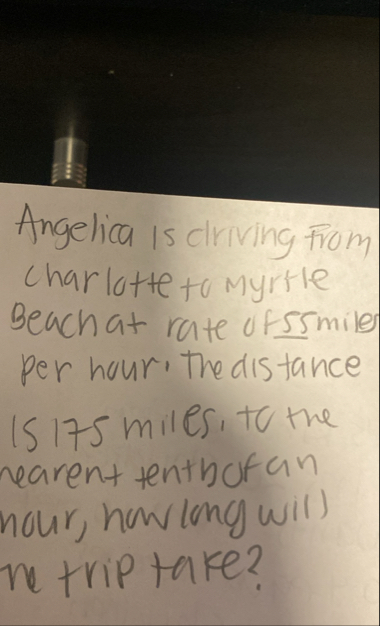 Angelica is driving From
charlotte to Myrtle
Beach at rate of 55 miles
per hour. The distance
is 175 miles. to the
nearent tenth of an
hour, how long will
he trip take?